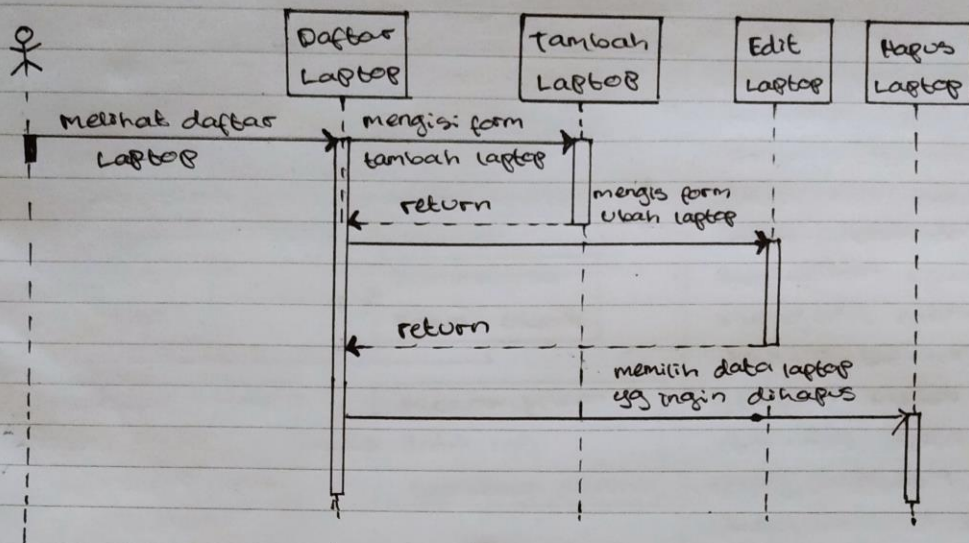 Daftar
Laptop
Tambah
Laptop
Edit
Laptop
Hapus
Laptop
melihat daftar
Laptop
mengisi form
tambah laptop
return
mengis form
Ubah laptop
return
memilih data laptop
yg ingin dihapus